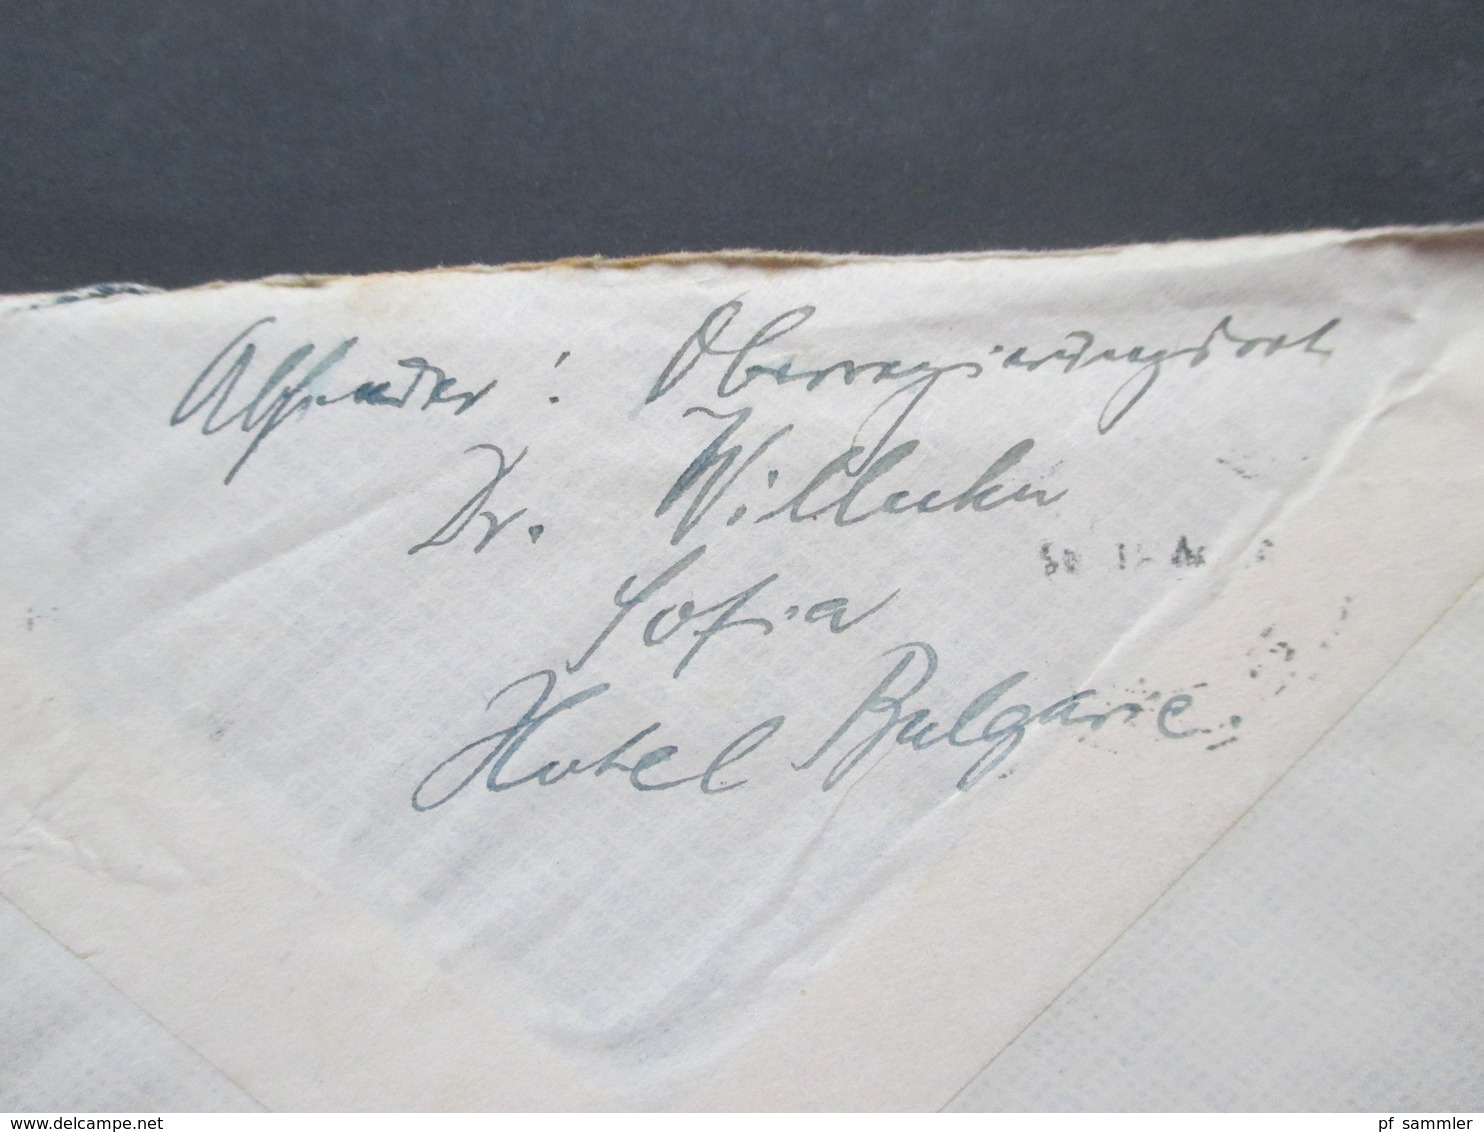 Absender: Oberregierungsrat
Dr. Willecke
Sofia
Hotel Bulgarie.
www.delcampe.net
pf_sammler